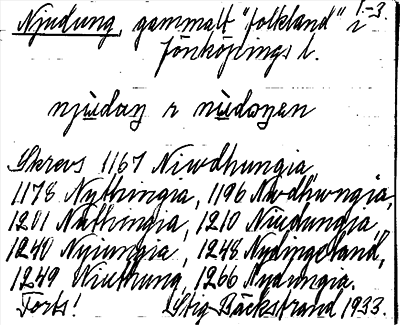 1-3.
Njudung, gammalt "folkland" i
Jönköpings l.
njùdaŋ r nùdoŋen
Skrevs 1167 Niwdhungia,
1178 Nythingia, 1196 Nwdhwngia,
1201 Nathingia, 1210 Niudungia,
1240 Nyiungia, 1248 Nydingeland,
1249 Niuthung, 1266 Nydungia.
Forts! Stig Bäckstrand 1933.